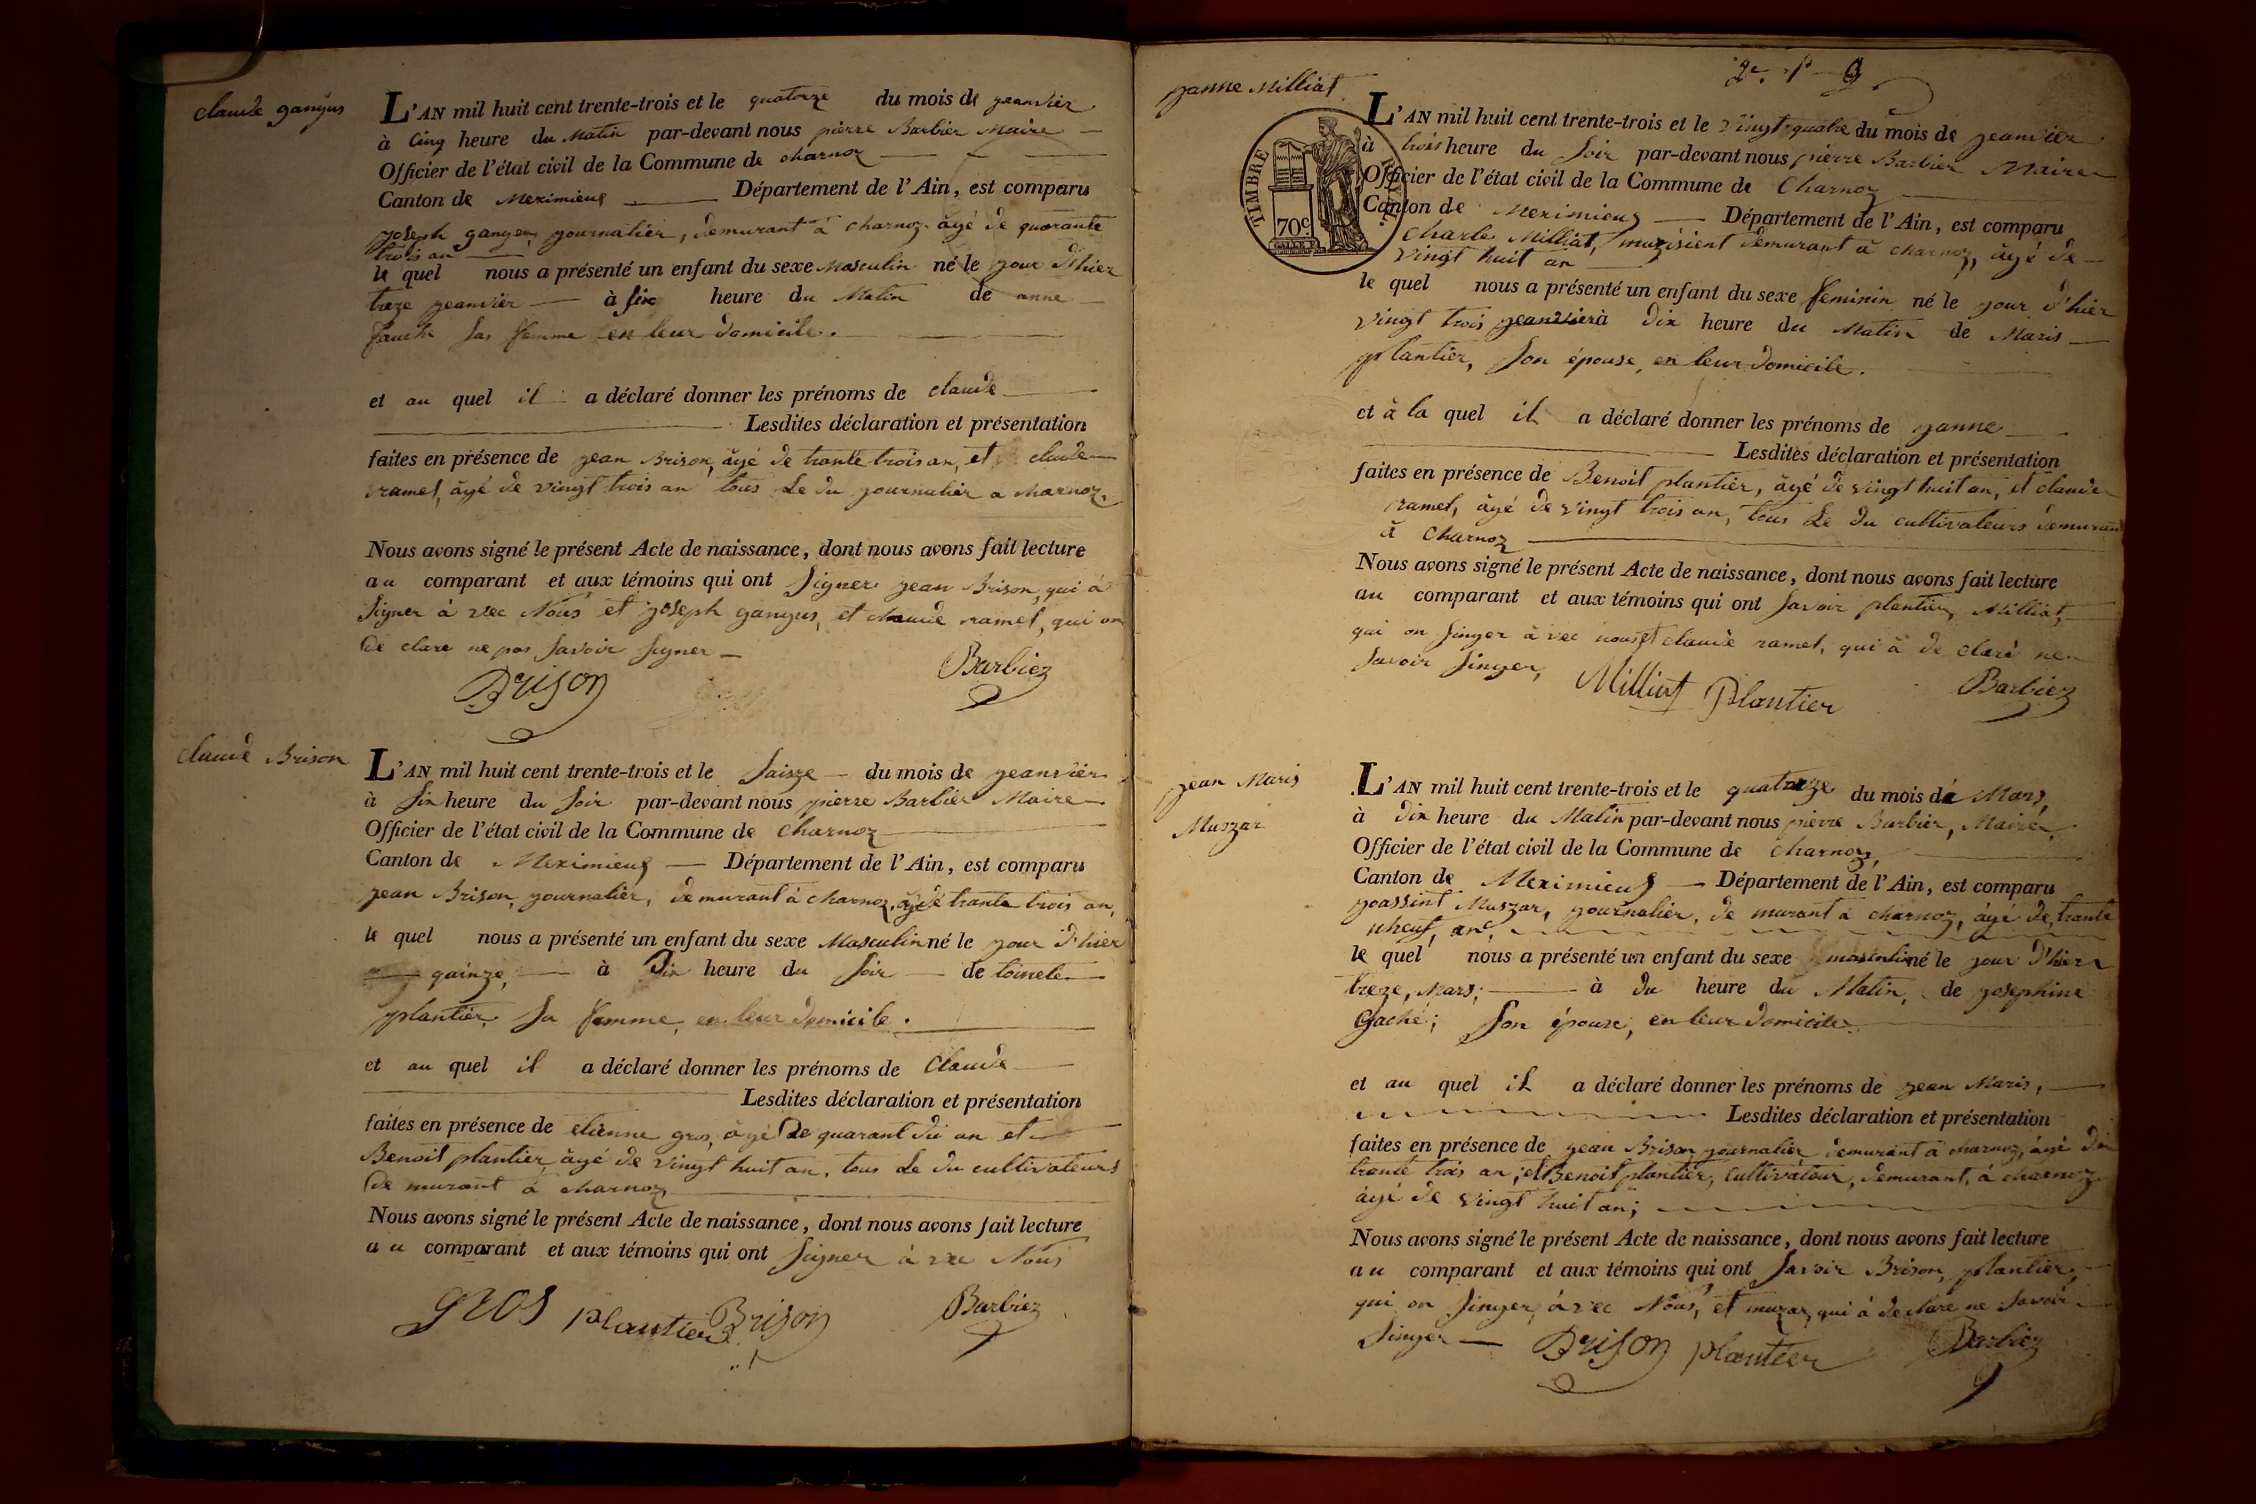 claude ganÿus
L'AN mil huit cent trente-trois et le quatorze du mois de jeanvier
à Cinq heure du Matin par-devant nous pierre Barbier Maire
Officier de l'état civil de la Commune de charnoz
Canton de Meximieux Département de l'Ain, est comparu
joseph journalier, demurant à charnoz âgé de quarante
trois an
le quel nous a présenté un enfant du sexe Masculin né le jour d'hier
treze jeanvier à six heure du Matin de anne
sas femme en leur domicile.
et au quel il a déclaré donner les prénoms de claude
Lesdites déclaration et présentation
faites en présence de jean Brison, âgé de trante trois an, et claude
ramel, âgé de vingt trois an tous Le du journalier a charnoz.
Nous avons signé le présent Acte de naissance, dont nous avons fait lecture
au comparant et aux témoins qui ont Signer jean Brison, qui à
Signer à vec Nous et joseph ganyus, et claude ramel, qui on
de clare ne pas savoir signer
Brison Barbiez
claude Brison
L'AN mil huit cent trente-trois et le saisze du mois de jeanvier
à six heure du soir par-devant nous pierre Barbier Maire
Officier de l'état civil de la Commune de charnoz
Canton de Meximieux Département de l'Ain, est comparu
jean Brison, journalier, demurant à charnoz, âgé de trante trois an,
le quel nous a présenté un enfant du sexe Masculin né le jour d'hier
quinze, à Dix heure du soir de toinete
plantier, sa femme, en leur domicile.
et au quel il a déclaré donner les prénoms de Claude
Lesdites déclaration et présentation
faites en présence de etienne gros, âgé de quarant dix an et
Benoit plantier âgé de vingt huit an. tous Le du cultivateurs
de murant à charnoz
Nous avons signé le présent Acte de naissance, dont nous avons fait lecture
au comparant et aux témoins qui ont signer à vec Nous
gros plantier Brison Barbiez
2e. f 9
janne Milliat
TIMBRE ROYAL
70c
L'AN mil huit cent trente-trois et le vingt quatre du mois de jeanvier
à trois heure du soir par-devant nous pierre Barbier Maire
Officier de l'état civil de la Commune de Charnoz
Canton de Meximieux Département de l'Ain, est comparu
Charle Milliat, muzisient demurant à charnoz, âgé de
vingt huit an
le quel nous a présenté un enfant du sexe feminin né le jour d'hier
vingt trois jeanvier à dix heure du Matin de Maris
plantier, son épouse, en leur domicile.
et à la quel il a déclaré donner les prénoms de janne
Lesdites déclaration et présentation
faites en présence de Benoit plantier, âgé de vingt huit an, et claude
ramel, âgé de vingt trois an, tous Le du cultivateurs demurant
à charnoz
Nous avons signé le présent Acte de naissance, dont nous avons fait lecture
au comparant et aux témoins qui ont savoir plantier, Milliat,
qui on singer à vec nous et claude ramel, qui à de claré ne
savoir singer,
Milliat Plantier Barbiez
jean Maris
Muszar
L'AN mil huit cent trente-trois et le quatorze du mois de Mars,
à dix heure du Matin par-devant nous pierre Barbier, Maire
Officier de l'état civil de la Commune de charnoz,
Canton de Meximieux Département de l'Ain, est comparu
joassint Muszar, journalier, de murant à charnoz, âgé de trante
nheuf, an,
le quel nous a présenté un enfant du sexe masculin né le jour d'hier
treze, Mars, à du heure du Matin, de josephine
Gaché; son épouse, en leur domicile.
et au quel il a déclaré donner les prénoms de jean Maris,
Lesdites déclaration et présentation
faites en présence de jean Brison journalier demurant à charnoz, âgé de
trante trois an; et Benoit plantier, Cultivateur, demurant, à charnoz
âgé de vingt huit an;
Nous avons signé le présent Acte de naissance, dont nous avons fait lecture
au comparant et aux témoins qui ont savoir Brison, plantier,
qui on singer, à vec Nous, et muzar, qui à declare ne savoir
singer
Brison plantier Barbiez